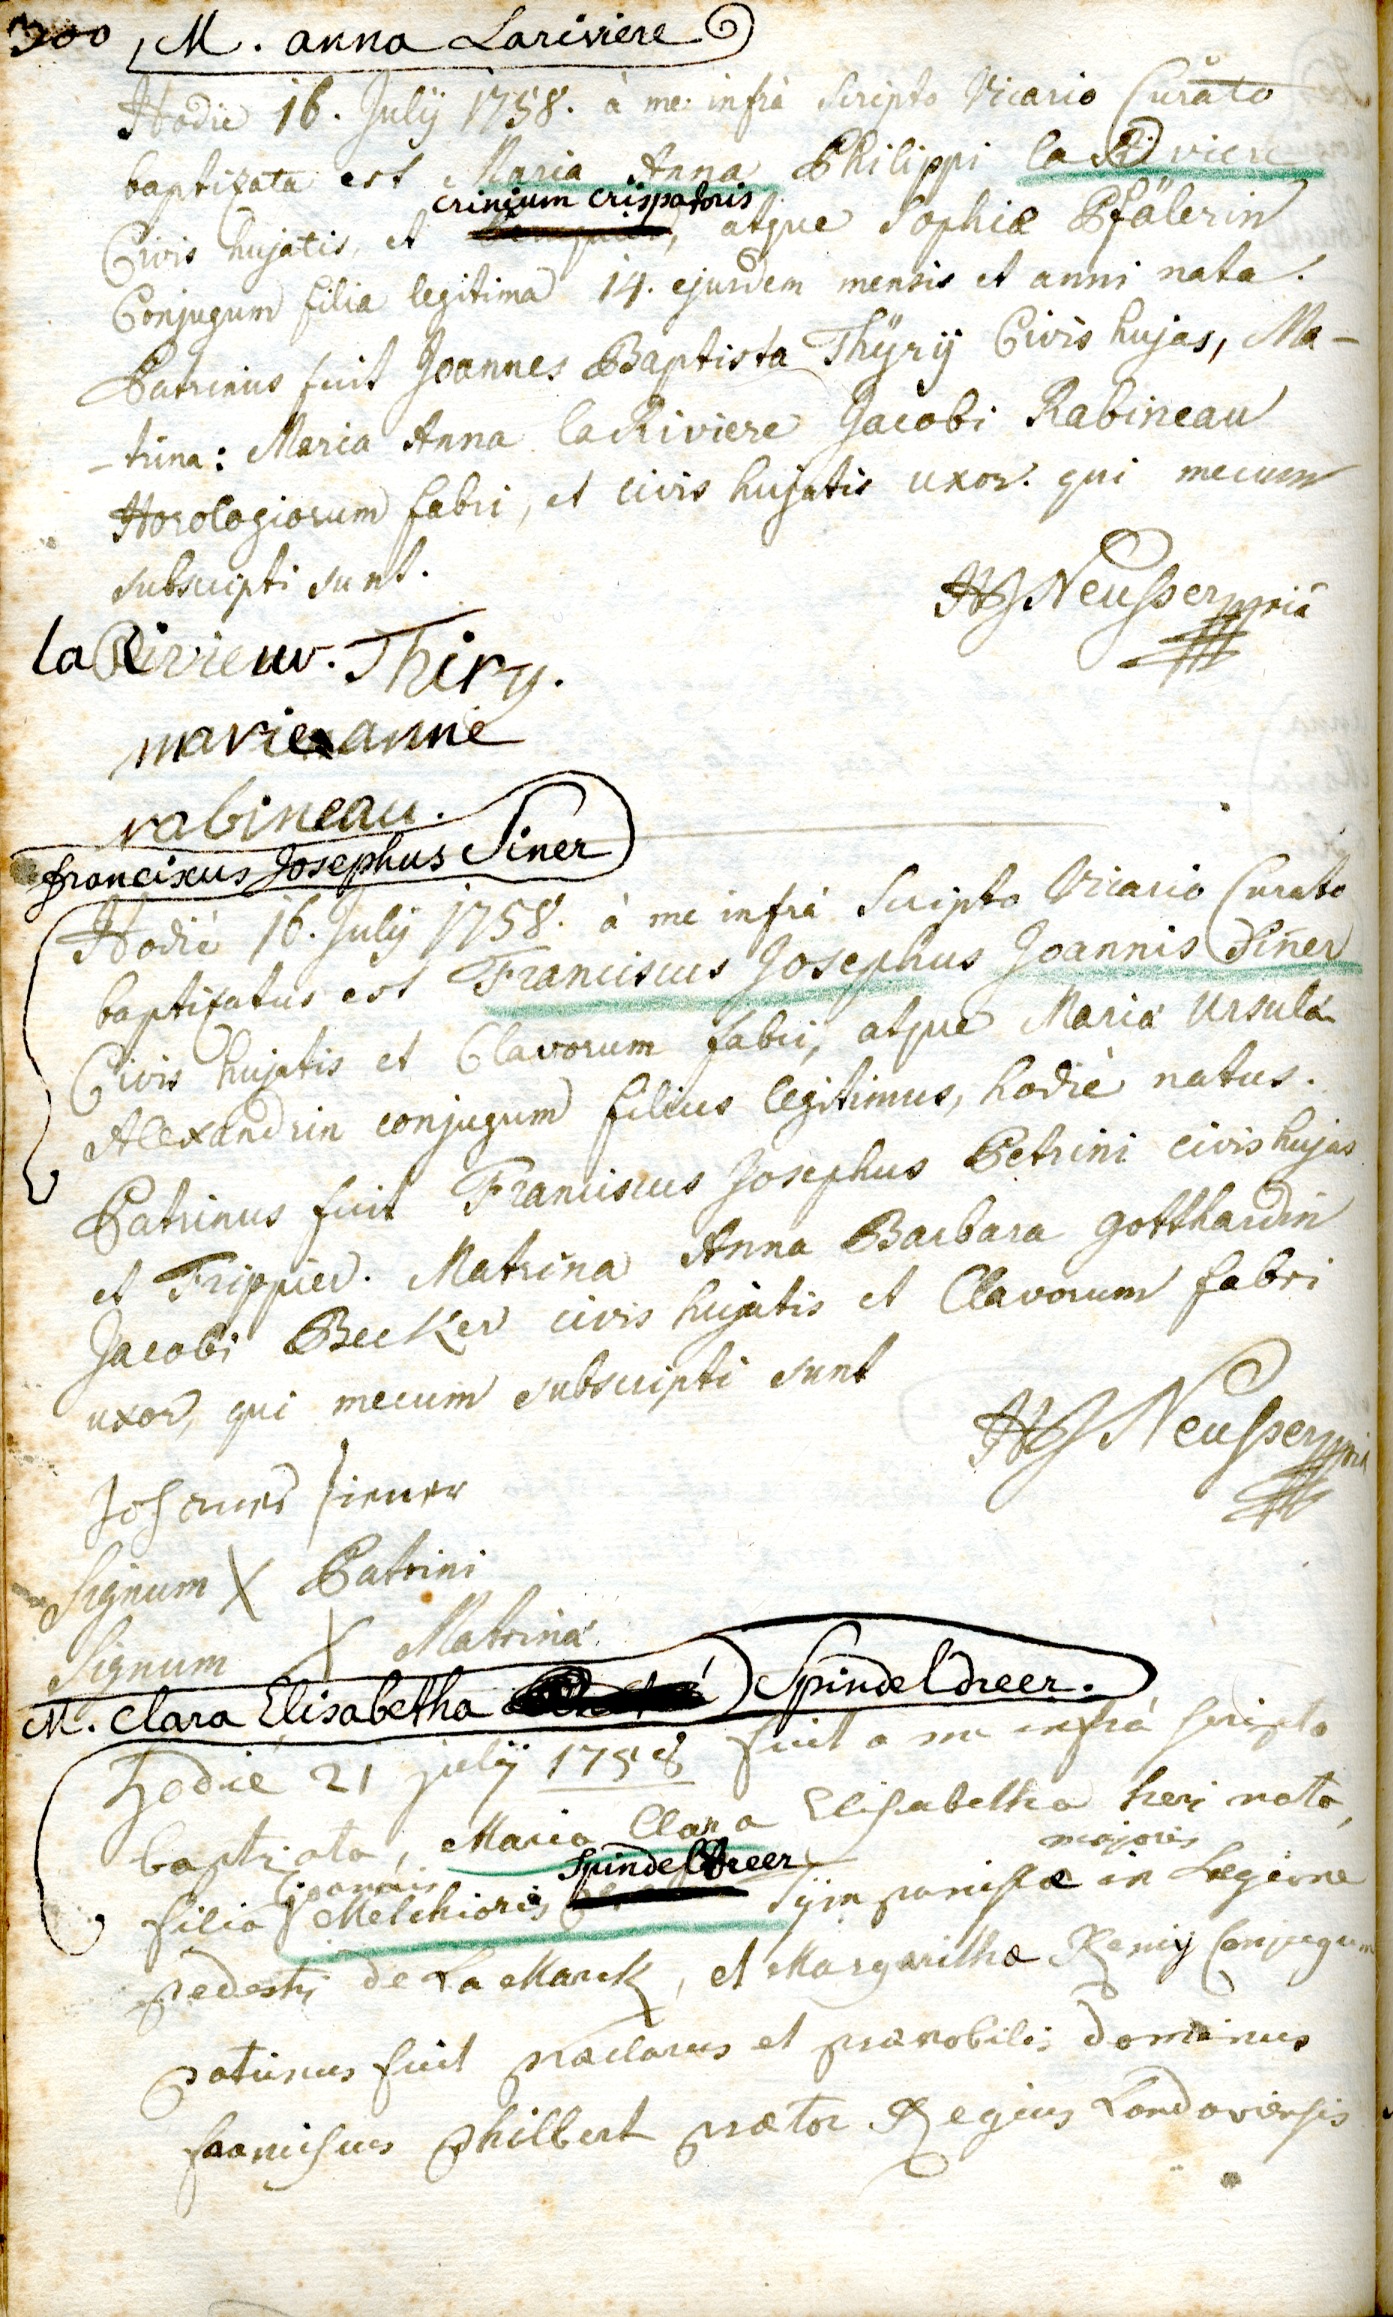 300 M. anna Lariviere
Hodie 16. Julij 1758. à me infrà scripto Vicario Curato
baptizata est Maria Anna Philippi la Riviere
crinium crispatoris
Civis hujatis, et atque Sophiæ Pfälerin
Conjugum filia legitima 14. ejusdem mensis et anni nata.
Patrinus fuit Joannes Baptista Thÿrÿ Civis hujas, Ma-
-trina: Maria Anna la Riviere Jacobi Rabineau
Horologiorum fabri, et civis hujatis uxor. qui mecum
subscripti sunt.
HJ Neusser mpriâ
la Rivieur. Thiry.
marie anne
rabineau.
franciscus Josephus Siner
Hodiè 16. Julij 1758. à me infrà Scripto Vicario Curato
baptizatus est Franciscus Josephus Joannis Siner
Civis hujatis et Clavorum fabri, atque Mariæ Ursulæ
Alexandrin conjugum filius legitimus, hodiè natus.
Patrinus fuit Franciscus Josephus Petrini civis hujas
et Frippier. Matrina Anna Barbara Gotthardin
Jacobi Becker civis hujatis et Clavorum fabri
uxor, qui mecum subscripti sunt
HJ Neusser mpria
Johannes siener
Signum X Patrini
Signum X Matrinæ
M. Clara Elisabetha Spindeldreer.
Hodie 21 julij 1758 fuit a me infrà scripto
baptizata, Maria Clara Elisabetha heri nata,
joannis spindeldreer majoris
filia Melchioris Tÿmpanistæ in Legione
pedestri de La Marck, et Margarithæ Remij Conjugum
patrinus fuit præclarus et prænobilis dominus
franciscus philbert prætor Regius Landaviensis